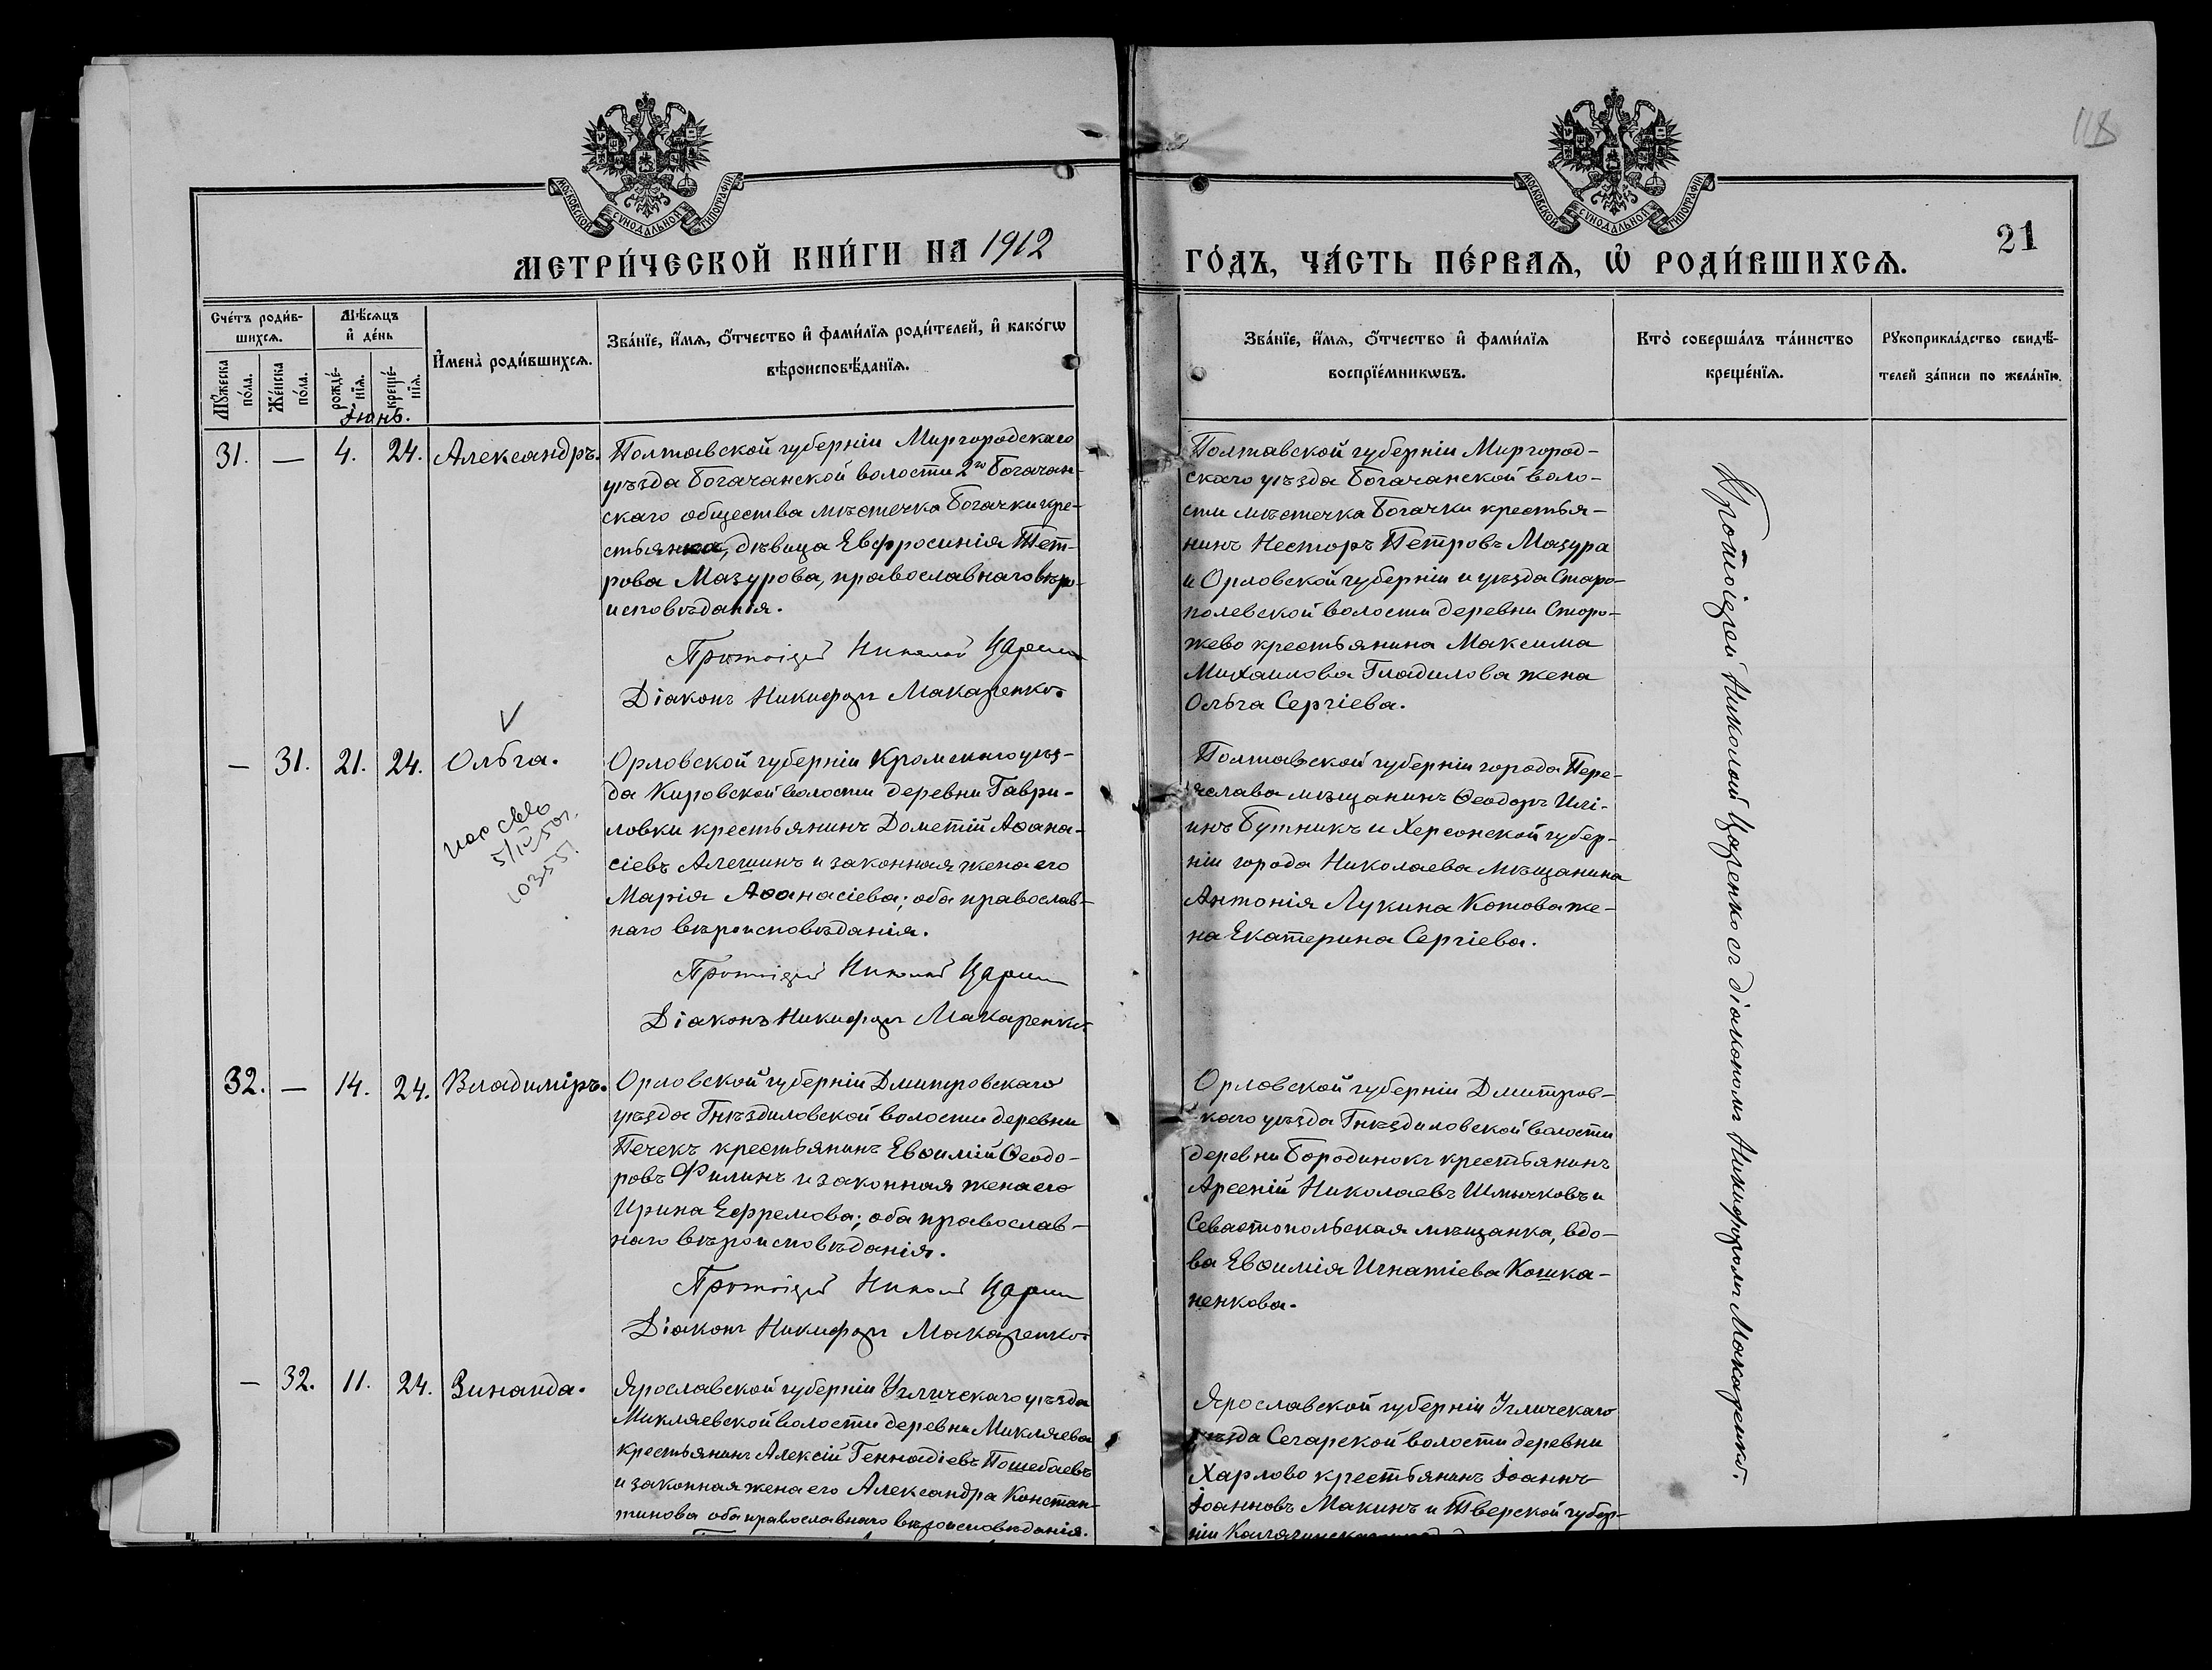 118
МОСКОВСКОЙ СѴНОДАЛЬНОЙ ТИПОГРАФІИ
МОСКОВСКОЙ СѴНОДАЛЬНОЙ ТИПОГРАФІИ
21
МЕТРИ́ЧЕСКОЙ КНИ́ГИ НА 1912
ГО́ДЪ, ЧА́СТЬ ПЕ́РВАѦ, Ѡ҆ РОДИ́ВШИХСѦ.
Сче́тъ роди́в-
шихсѧ.
Мꙋ́жеска по́ла.
Же́нска по́ла.
Мѣ́сѧцъ
и҆ де́нь
рожде́-
нїѧ.
креще́-
нїѧ.
Іюнь.
И҆мена̀ роди́вшихсѧ.
Зва́нїе, и҆́мѧ, ѻ҆́тчество и҆ фами́лїѧ роди́телей, и҆ како́гѡ
вѣроисповѣ́данїѧ.
Зва́нїе, и҆́мѧ, ѻ҆́тчество и҆ фами́лїѧ
воспрїе́мникѡвъ.
Кто̀ соверша́лъ та́инство
креще́нїѧ.
Рꙋкоприкла́дство свидѣ́-
телей за́писи по жела́нїю.
31. — 4. 24. Александръ.
Полтавской губерніи Миргородскаго
уѣзда Богачанской волости 2го Богачан-
скаго общества мѣстечка Богачки кре-
стьянка, дѣвица Евфросинія Пет-
рова Мазурова, православнаго вѣро-
исповѣданія.
Протоіерей Николай Царенко
Діаконъ Никифоръ Макаренко.
Полтавской губерніи Миргород-
скаго уѣзда Богачанской воло-
сти мѣстечка Богачки крестья-
нинъ Несторъ Петровъ Мазура
и Орловской губерніи и уѣзда Старо-
полевской волости деревни Сторо-
жево крестьянина Максима
Михаилова Гладилова жена
Ольга Сергіева.
— 31. 21. 24. Ольга.
5/IV 50г.
Орловской губерніи Кромскаго уѣз-
да Кировской волости деревни Гаври-
ловки крестьянинъ Дометій Аѳана-
сіевъ Алешинъ и законная жена его
Марія Аѳанасіева; оба православ-
наго вѣроисповѣданія.
Протоіерей Николай Царенко
Діаконъ Никифоръ Макаренко
Полтавской губерніи города Пере-
яслава мѣщанинъ Ѳеодоръ Илі-
инъ Бутникъ и Херсонской губер-
ніи города Николаева мѣщанина
Антонія Лукина Котова же-
на Екатерина Сергіева.
32. — 14. 24. Владиміръ.
Орловской губерніи Дмитровскаго
уѣзда Гнѣздиловской волости деревни
Печекъ крестьянинъ Евѳимій Ѳеодо-
ровъ Филинъ и законная жена его
Ирина Ефремова; оба православ-
наго вѣроисповѣданія.
Протоіерей Николай Царенко
Діаконъ Никифоръ Макаренко.
Орловской губерніи Дмитров-
скаго уѣзда Гнѣздиловской волости
деревни Бородинокъ крестьянинъ
Арсеній Николаевъ и
Севастопольская мѣщанка, вдо-
ва Евѳимія Игнатіева Кошка-
ненкова.
— 32. 11. 24. Зинаида.
Ярославской губерніи Угличскаго уѣзда
Микляевской волости деревни Микляева
крестьянинъ Алексій Геннадіевъ Пошебаевъ
и законная жена его Александра Констан-
тинова оба православнаго вѣроисповѣданія.
Ярославской губерніи Угличскаго
уѣзда Сегарской волости деревни
Харлово крестьянинъ Іоаннъ
Іоанновъ Макинъ и Тверской губер-
ніи
Протоіерей Николай Царенко съ діакономъ Никифоромъ Макаренко.